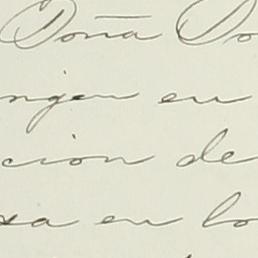 Doña Do
ngan en
cion de
sa en lo